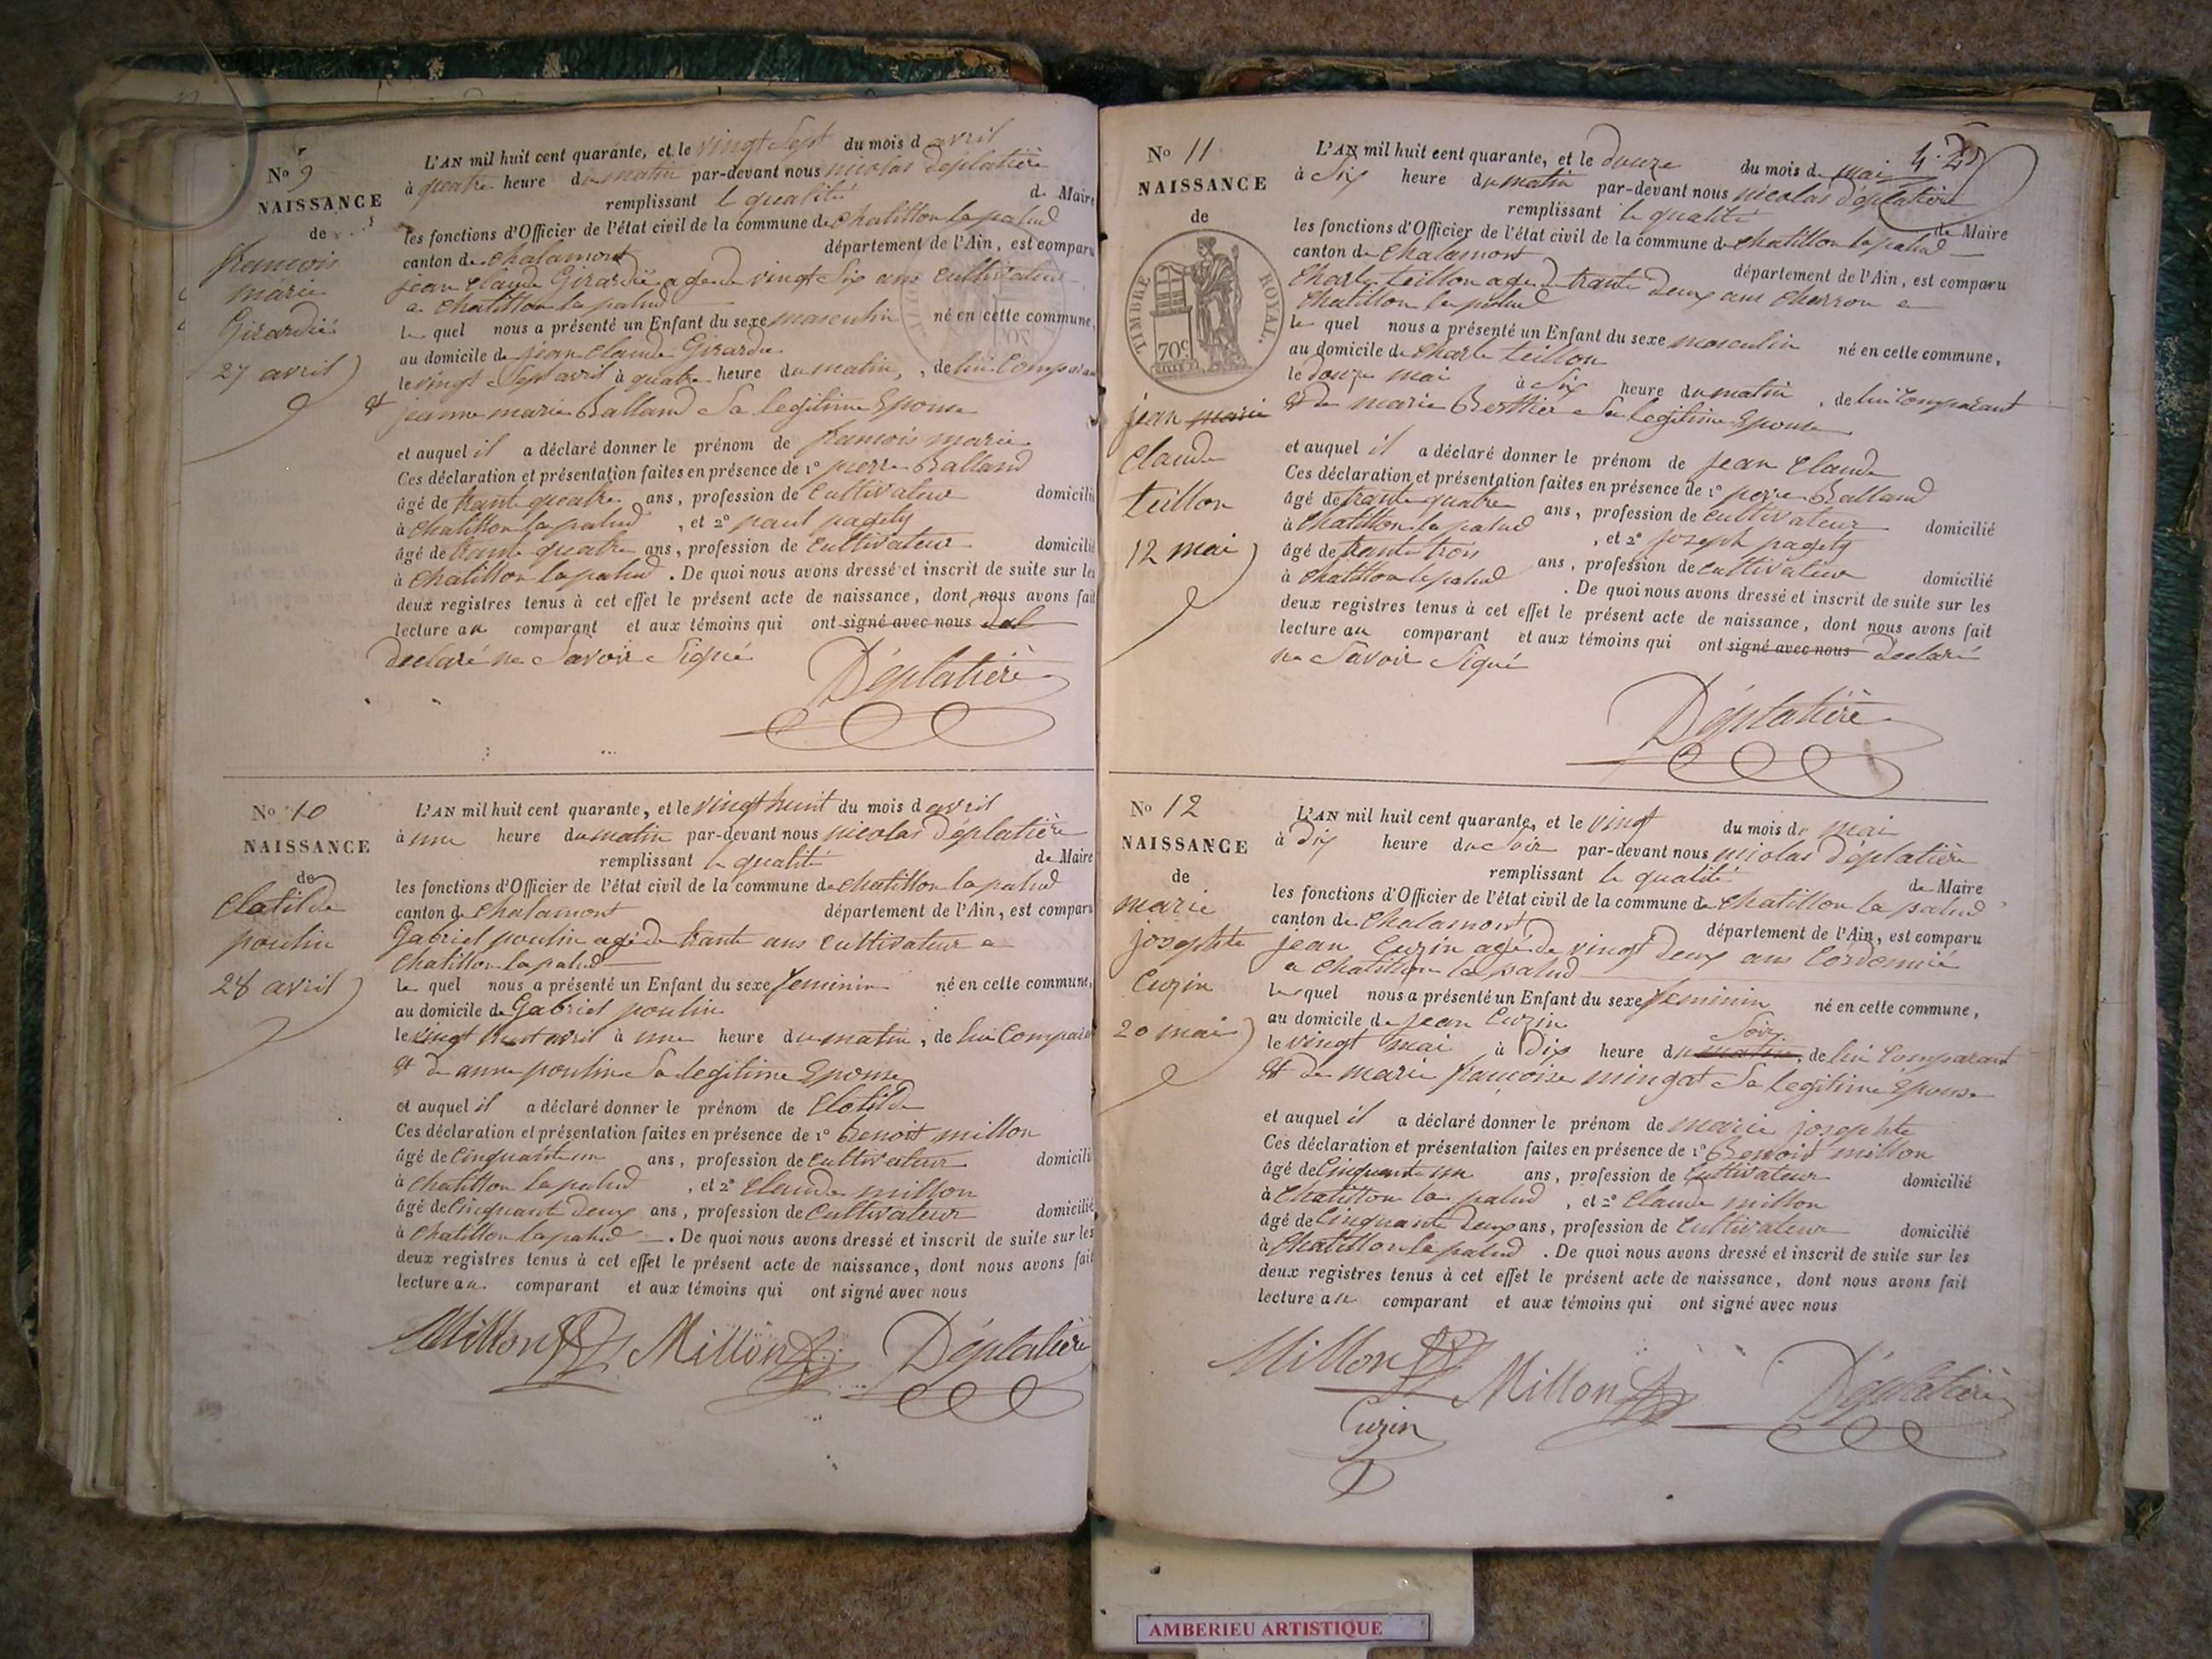 No 9
NAISSANCE
de
francois
marie
Girardié
27 avril
L'AN mil huit cent quarante, et le vingt Sept du mois d avril
à quatre heure du matin par-devant nous nicolas Déplatière
remplissant le qualité de Maire
les fonctions d'Officier de l'état civil de la commune de chatillon la palud
canton de chalamont département de l'Ain, est comparu
jean claude Girardié age de vingt Six ans cultivateur
a chatillon la palud
le quel nous a présenté un Enfant du sexe masculin né en cette commune,
au domicile de jean claude Girardie
le vingt Sept avril à quatre heure du matin, de lui Comparant
et jeanne marie Balland Sa legitime Epouse
et auquel il a déclaré donner le prénom de francois marie
Ces déclaration et présentation faites en présence de 1° pierre Balland
âgé de trante quatre ans, profession de Cultivateur domicilié
à chatillon la palud, et 2° paul pagely
âgé de trante quatre ans, profession de Cultivateur domicilié
à chatillon la palud. De quoi nous avons dressé et inscrit de suite sur les
deux registres tenus à cet effet le présent acte de naissance, dont nous avons fait
lecture au comparant et aux témoins qui ont signé avec nous
declaré ne Savoir Signé
Déplatière
No 10
NAISSANCE
de
Clotilde
poulin
28 avril
L'AN mil huit cent quarante, et le vingt huit du mois d avril
à une heure du matin par-devant nous nicolas Déplatière
remplissant le qualité de Maire
les fonctions d'Officier de l'état civil de la commune de chatillon la palud
canton de chalamont département de l'Ain, est comparu
Gabriel poulin agé de trante ans cultivateur a
chatillon la palud
le quel nous a présenté un Enfant du sexe feminin né en cette commune,
au domicile de Gabriel poulin
le vingt huit avril à une heure du matin, de lui Comparant
et de anne poulin Sa legitime Epouse
et auquel il a déclaré donner le prénom de Clotilde
Ces déclaration et présentation faites en présence de 1° Benoit millon
âgé de Cinquante un ans, profession de Cultivateur domicilié
à chatillon la palud, et 2° Claude millon
âgé de Cinquant Deux ans, profession de Cultivateur domicilié
à chatillon la palud. De quoi nous avons dressé et inscrit de suite sur les
deux registres tenus à cet effet le présent acte de naissance, dont nous avons fait
lecture au comparant et aux témoins qui ont signé avec nous
Millon Millon Déplatière
No 11
NAISSANCE
de
TIMBRE ROYAL.
70c
jean marie
Claude
teillon
12 mai
L'AN mil huit cent quarante, et le douze du mois de mai
à Six heure du matin par-devant nous nicolas Déplatière
remplissant le qualité de Maire
les fonctions d'Officier de l'état civil de la commune de chatillon la palud
canton de chalamont département de l'Ain, est comparu
Charle teillon age de trante Deux ans charron a
chatillon la palud
le quel nous a présenté un Enfant du sexe masculin né en cette commune,
au domicile de charle teillon
le Douze mai à Six heure du matin, de lui Comparant
et de marie Berthier Sa legitime Epouse
et auquel il a déclaré donner le prénom de jean Claude
Ces déclaration et présentation faites en présence de 1° pierre Balland
âgé de trante quatre ans, profession de cultivateur domicilié
à chatillon la palud, et 2° joseph pagely
âgé de trante trois ans, profession de cultivateur domicilié
à chatillon la palud. De quoi nous avons dressé et inscrit de suite sur les
deux registres tenus à cet effet le présent acte de naissance, dont nous avons fait
lecture au comparant et aux témoins qui ont signé avec nous declaré
ne Savoir Signé
Déplatière
No 12
NAISSANCE
de
marie
josephte
Cuzin
20 mai
L'AN mil huit cent quarante, et le vingt du mois de mai
à Dix heure du Soir par-devant nous nicolas Déplatière
remplissant le qualité de Maire
les fonctions d'Officier de l'état civil de la commune de chatillon la palud
canton de chalamont département de l'Ain, est comparu
jean Cuzin agé de vingt Deux ans Cordonnié
a chatillon la palud
le quel nous a présenté un Enfant du sexe feminin né en cette commune,
au domicile de jean Cuzin
Soir
le vingt mai à Dix heure du matin, de lui Comparant
et de marie francoise mingat Sa legitime Epouse
et auquel il a déclaré donner le prénom de marie josephte
Ces déclaration et présentation faites en présence de 1° Benoit millon
âgé de Cinquante un ans, profession de Cultivateur domicilié
à chatillon la palud, et 2° Claude millon
âgé de Cinquante Deux ans, profession de Cultivateur domicilié
à chatillon la palud. De quoi nous avons dressé et inscrit de suite sur les
deux registres tenus à cet effet le présent acte de naissance, dont nous avons fait
lecture au comparant et aux témoins qui ont signé avec nous
Millon Millon Déplatière
Cuzin
AMBERIEU ARTISTIQUE